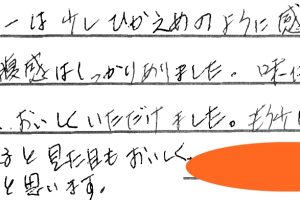 ーは少しひかえめのように感
腹感はしっかりありました。味に
おいしくいただけました。もう少し
と見た目もおいしく
と思います。